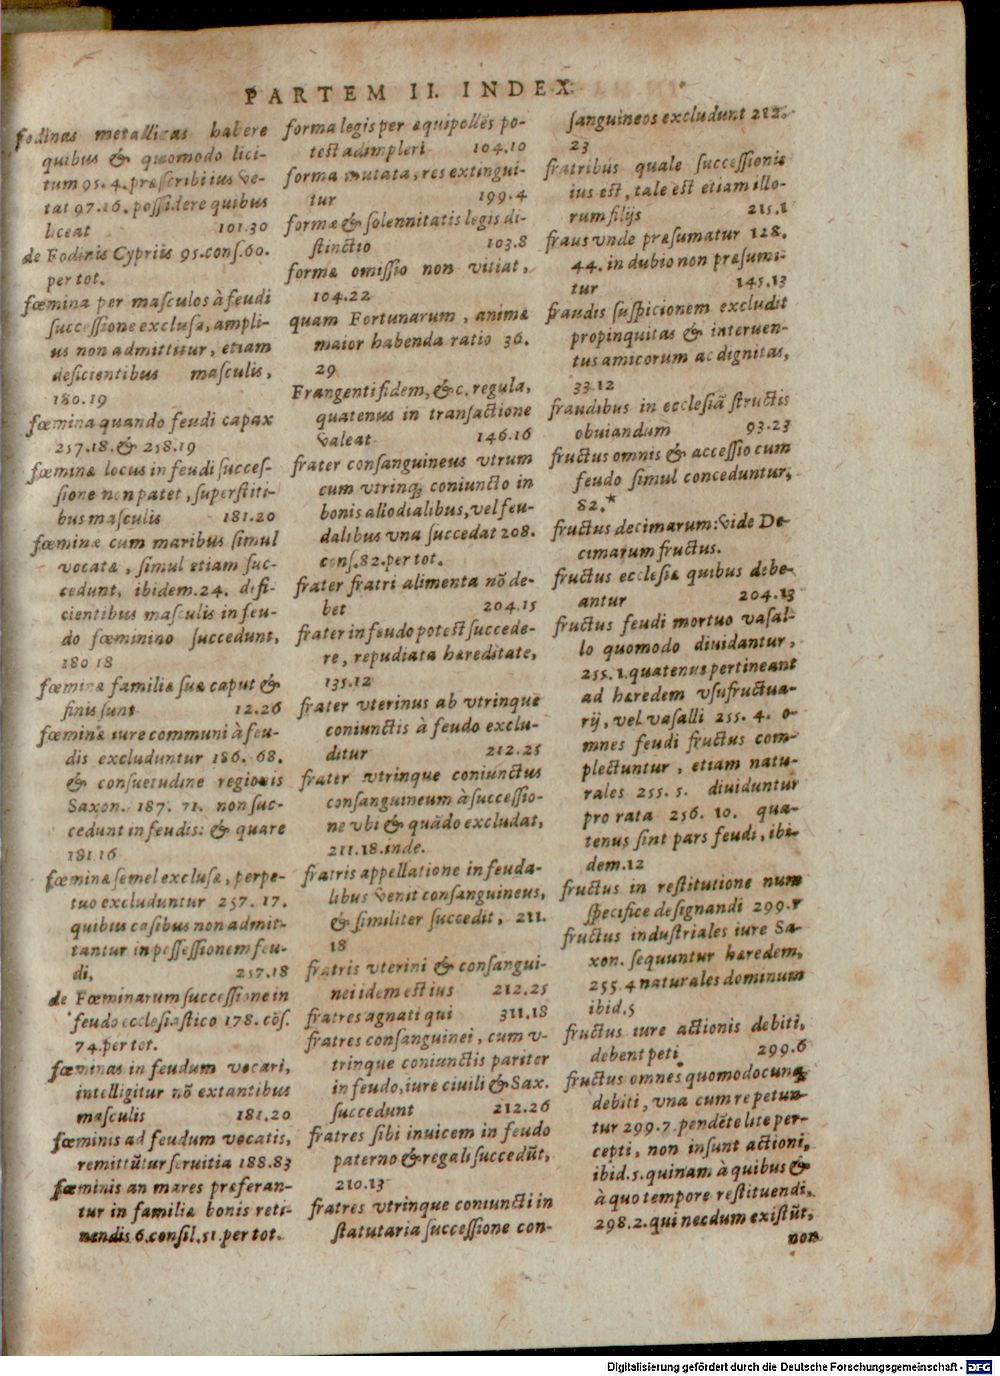 PARTEM II. INDEX.
fodinas metallicas habere
quibus & quomodo lici-
tum 95. 4. præscribi ius ve-
tat 97.16. possidere quibus
liceat 101.30
de Fodinis Cypriis 95. cons. 60.
per tot.
fœmina per masculos à feudi
successione exclusa, ampli-
us non admittitur, etiam
deficientibus masculis,
180.19
fœmina quando feudi capax
257.18. & 258.19
fœminæ locus in feudi succes-
sione non patet, superstiti-
bus masculis 181.20
fœminæ cum maribus simul
vocatæ, simul etiam suc-
cedunt, ibidem.24. defi-
cientibus masculis in feu-
do fœminino succedunt,
180 18
fœmina familiæ suæ caput &
finis sunt 12.26
fœminæ iure communi à feu-
dis excluduntur 186. 68.
& consuetudine regionis
Saxon. 187. 71. non suc-
cedunt in feudis: & quare
181.16
fœminæ semel exclusæ, perpe-
tuo excluduntur 257. 17.
quibus casibus non admit-
tantur in possessionem feu-
di, 257.18
de Fœminarum successione in
feudo ecclesiastico 178. cōs.
74. per tot.
fœminas in feudum vocari,
intelligitur nō extantibus
masculis 181.20
fœminis ad feudum vocatis,
remittūtur seruitia 188.83
fœminis an mares præferan-
tur in familiæ bonis reti-
nendis 6. consil. 51. per tot.
forma legis per æquipollēs po-
test adimpleri 104.10
forma mutata, res extingui-
tur 199.4
formæ & solennitatis legis di-
stinctio 103.8
formæ omissio non vitiat,
104.22
quam Fortunarum, animæ
maior habenda ratio 36.
29
Frangenti fidem, &c. regula,
quatenus in transactione
valeat 146.16
frater consanguineus vtrum
cum vtrinq; coniuncto in
bonis allodialibus, vel feu-
dalibus vna succedat 208.
cons. 82. per tot.
frater fratri alimenta nō de-
bet 204.15
frater in feudo potest succede-
re, repudiata hæreditate,
135.12
frater vterinus ab vtrinque
coniunctis à feudo exclu-
ditur 212.25
frater vtrinque coniunctus
consanguineum à successio-
ne vbi & quādo excludat,
211.18. inde.
fratris appellatione in feuda-
libus venit consanguineus,
& similiter succedit, 211.
18
fratris vterini & consangui-
nei idem est ius 212.25
fratres agnati qui 311.18
fratres consanguinei, cum v-
trinque coniunctis pariter
in feudo, iure ciuili & Sax.
succedunt 212.26
fratres sibi inuicem in feudo
paterno & regali succedūt,
210.13
fratres vtrinque coniuncti in
statutaria successione con-
sanguineos excludunt 212.
23
fratribus quale successionis
ius est, tale est etiam illo-
rum filijs 215.1
fraus vnde præsumatur 128.
44. in dubio non præsumi-
tur 145.13
fraudis suspicionem excludit
propinquitas & interuen-
tus amicorum ac dignitas,
33.12
fraudibus in ecclesiā structis
obuiandum 93.23
fructus omnis & accessio cum
feudo simul conceduntur,
82.*
fructus decimarum: vide De-
cimarum fructus.
fructus ecclesiæ quibus debe-
antur 204.13
fructus feudi mortuo vasal-
lo quomodo diuidantur,
255. 1. quatenus pertineant
ad hæredem vsufructua-
rij, vel vasalli 255. 4. o-
mnes feudi fructus com-
plectuntur, etiam natu-
rales 255. 5. diuiduntur
pro rata 256. 10. qua-
tenus sint pars feudi, ibi-
dem.12
fructus in restitutione num
specifice designandi 299.7
fructus industriales iure Sa-
xon. sequuntur hæredem,
255.4 naturales dominum
ibid.5
fructus iure actionis debiti,
debent peti 299.6
fructus omnes quomodocunq;
debiti, vna cum repetun-
tur 299.7. pendēte lite per-
cepti, non insunt actioni,
ibid.5. quinam à quibus &
à quo tempore restituendi,
298.2. qui necdum existūt,
non
Digitalisierung gefördert durch die Deutsche Forschungsgemeinschaft - DFG